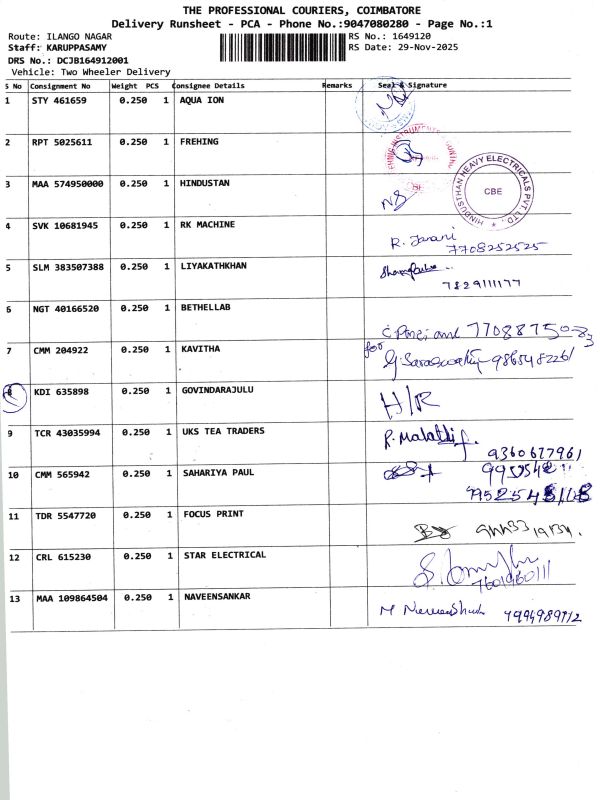 THE PROFESSIONAL COURIERS, COIMBATORE
Delivery Runsheet - PCA - Phone No.:9047080280 - Page No.:1
Route: ILANGO NAGAR
RS No.: 1649120
Staff: KARUPPASAMY
RS Date: 29-Nov-2025
DRS No.: DCJB164912001
Vehicle: Two Wheeler Delivery
S No Consignment No Weight PCS Consignee Details Remarks Seal & Signature
1 STY 461659 0.250 1 AQUA ION
2 RPT 5025611 0.250 1 FREHING
3 MAA 574950000 0.250 1 HINDUSTAN
HINDUSTHAN HEAVY ELECTRICALS PVT. LTD.
CBE
4 SVK 10681945 0.250 1 RK MACHINE
R. Janani
7708252525
5 SLM 383507388 0.250 1 LIYAKATHKHAN
7829111177
6 NGT 40166520 0.250 1 BETHELLAB
7 CMM 204922 0.250 1 KAVITHA
for
G. Saraswathy 9865482261
8 KDI 635898 0.250 1 GOVINDARAJULU H/R
9 TCR 43035994 0.250 1 UKS TEA TRADERS R. Malathi
9360677961
10 CMM 565942 0.250 1 SAHARIYA PAUL
11 TDR 5547720 0.250 1 FOCUS PRINT
12 CRL 615230 0.250 1 STAR ELECTRICAL
13 MAA 109864504 0.250 1 NAVEENSANKAR